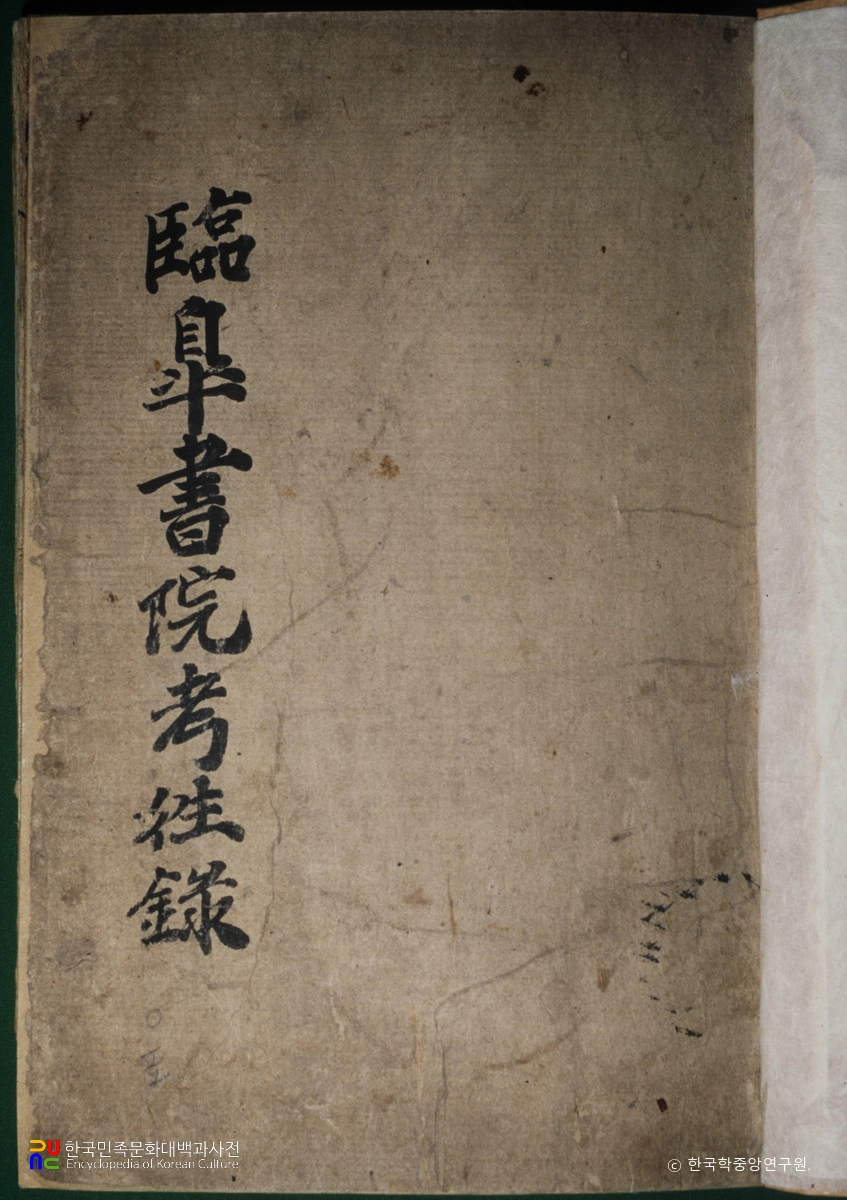 臨皐書院考徃錄
한국민족문화대백과사전
Encyclopedia of Korean Culture
© 한국학중앙연구원.